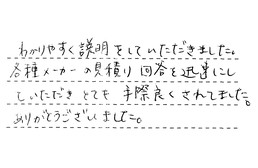 わかりやすく説明をしていただきました。
各種メーカーの見積り回答を迅速にし
ていただき とても 手際良くされてました。
ありがとうございました。